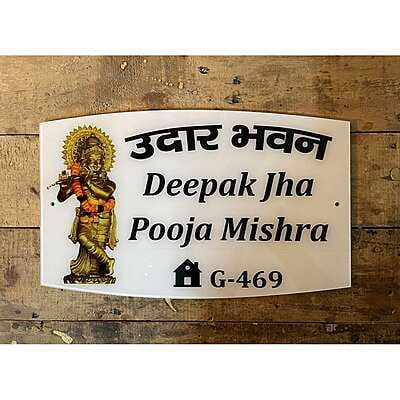 उदार भवन
Deepak Jha
Pooja Mishra
G-469